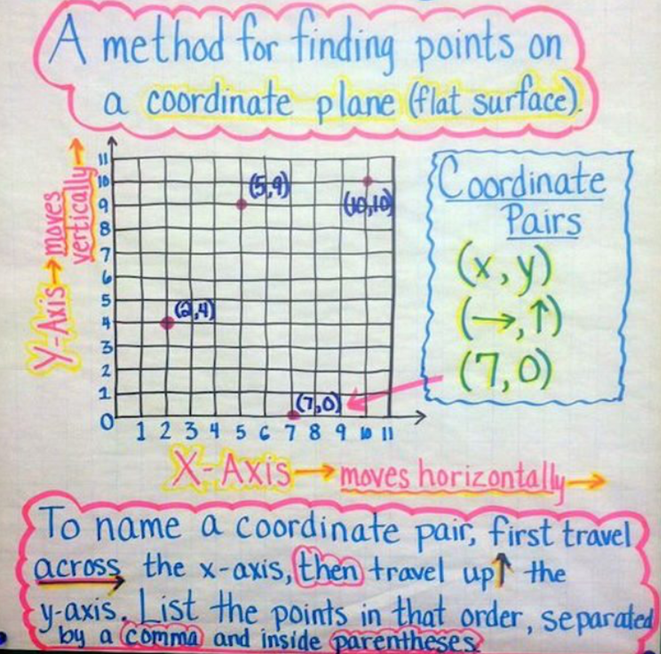 A method for finding points on
a coordinate plane (flat surface).
Y-Axis → moves
vertically →
11
10
9
8
7
6
5
4
3
2
1
0
(5,9)
(10,10)
(2,4)
(7,0)
1 2 3 4 5 6 7 8 9 10 11
X-Axis → moves horizontally →
Coordinate
Pairs
(x, y)
(→, ↑)
(7, 0)
To name a coordinate pair, first travel
across the x-axis, then travel up↑ the
y-axis. List the points in that order, separated
by a comma and inside parentheses